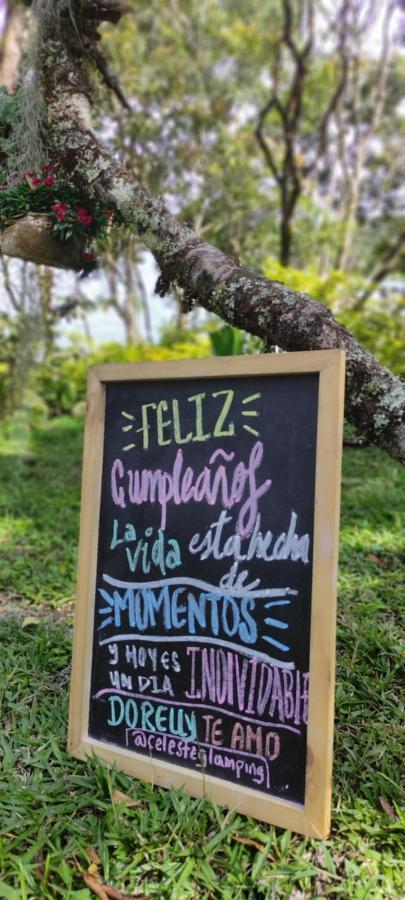 FELIZ
Cumpleaños
La vida está hecha
de
MOMENTOS
y HOY ES INOIVIDABLE
UN DIA
DORELLY TE AMO
@celesteglamping